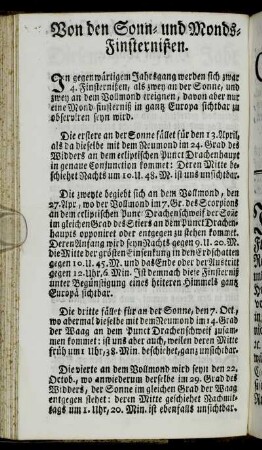 Von den Sonn- und Monds-
Finsternißen.
In gegenwärtigem Jahrsgang werden sich zwar
4. Finsternißen, als zwey an der Sonne, und
zwey an dem Vollmond ereignen, davon aber nur
eine Mond-finsterniß in gantz Europa sichtbar zu
observiren seyn wird.
Die erstere an der Sonne fället für den 13. April,
als da dieselbe mit dem Neumond im 24. Grad des
Widders an dem ecliptischen Punct Drachenhaupt
in genaue Conjunction kommet: Deren Mitte be-
schiehet Nachts um 10. U. 48. M. ist uns unsichtbar.
Die zweyte begiebt sich an dem Vollmond, den
27. Apr, wo der Vollmond im 7. Gr. des Scorpions
an dem ecliptischen Punc Drachenschweif der
im gleichen Grad des Stiers an dem Punct Drachen-
haupts opponiret oder entgegen zu stehen kommet.
Deren Anfang wird seyn Nachts gegen 9. U. 20. M.
die Mitte der grösten Einsenkung in den Erdschatten
gegen 10. U. 45. M. und das Ende oder der Austritt
gegen 12. Uhr, 6. Min. Ist demnach diese Finsterniß
unter Begünstigung eines heiteren Himmels ganz
Europä sichtbar.
Die dritte fället für an der Sonne, den 7. Oct,
wo abermal dieselbe mit dem Neumond im 14. Grad
der Waag an dem Punct Drachenschweif zusam
men kommet: ist uns aber auch, weilen deren Mitte
früh um 1 Uhr, 38. Min. beschiehet, ganz unsichtbar.
Die vierte an dem Vollmond wird seyn den 22.
Octob., wo anwiederum derselbe im 29. Grad des
Widders, der Sonne im gleichen Grad der Waag
entgegen stehet: deren Mitte geschiehet Nachmit-
tags um 1. Uhr, 20. Min. ist ebenfalls unsichtbar.